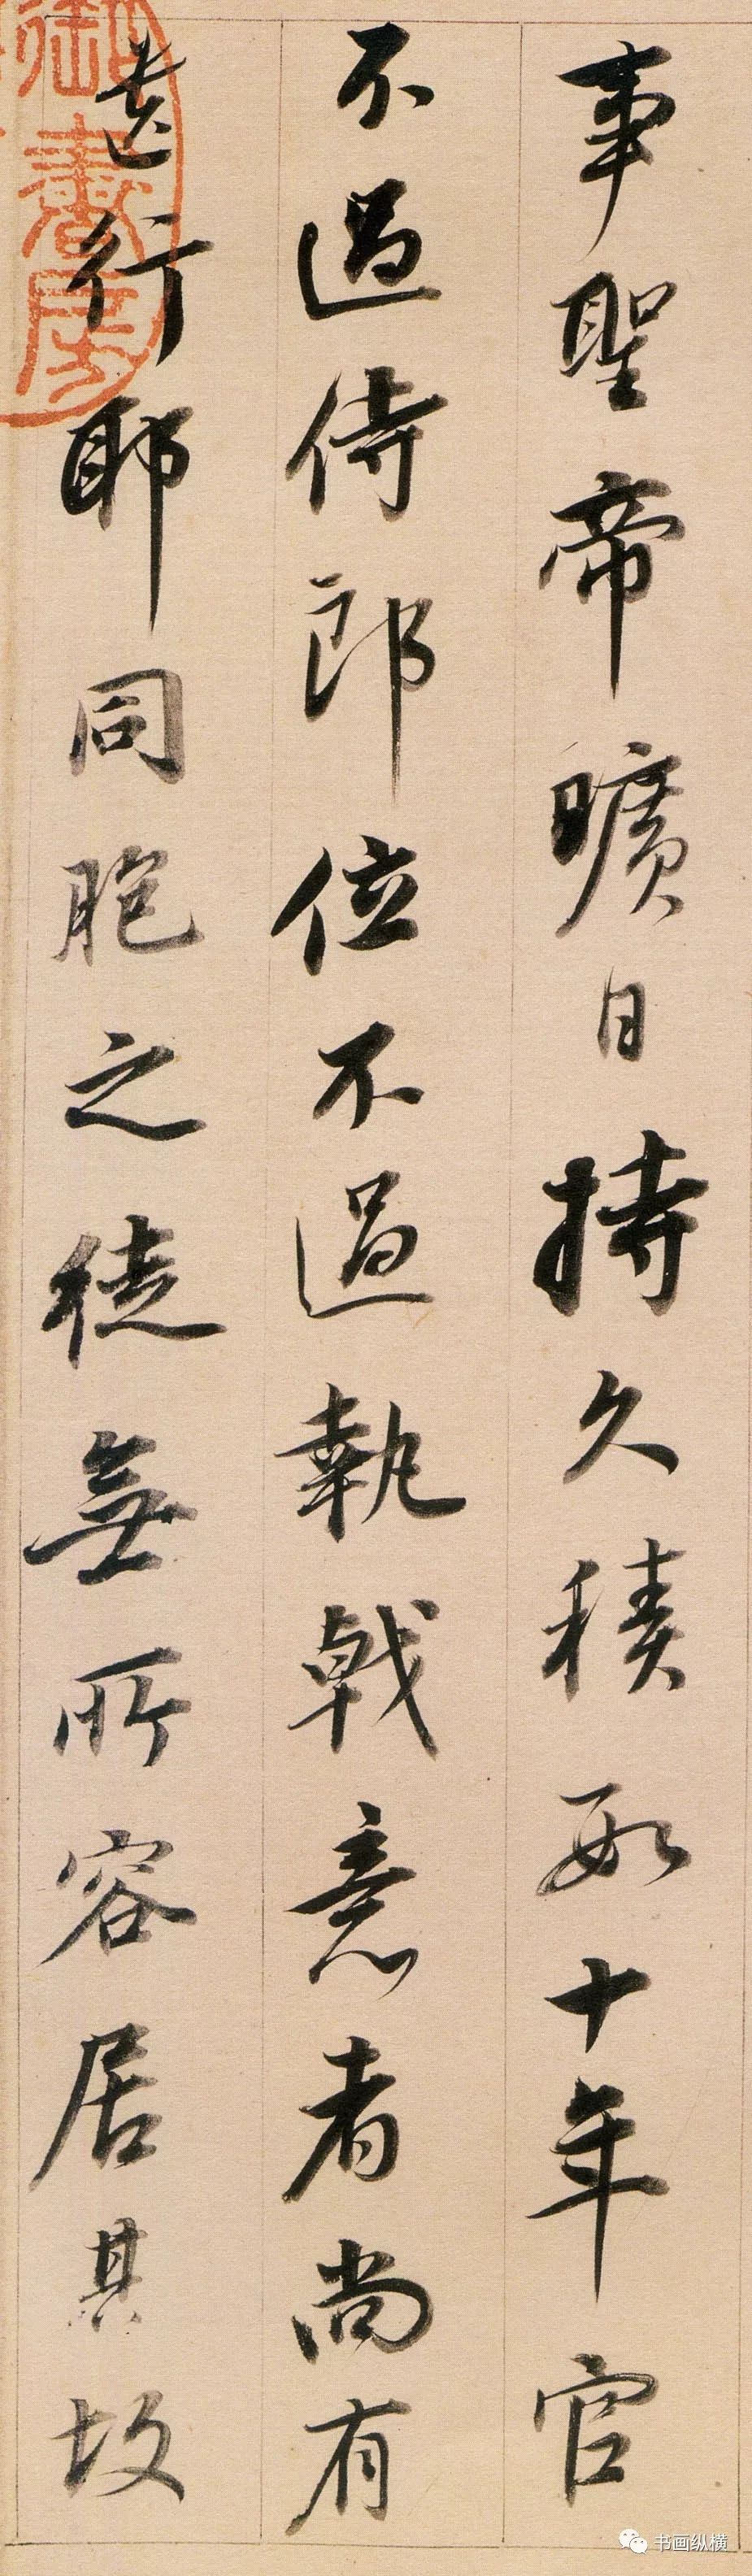 事聖帝曠日持久積數十年官
不過侍郎位不過執戟意者尚有
遺行耶同胞之徒無所容居其故
御書房
书画纵横